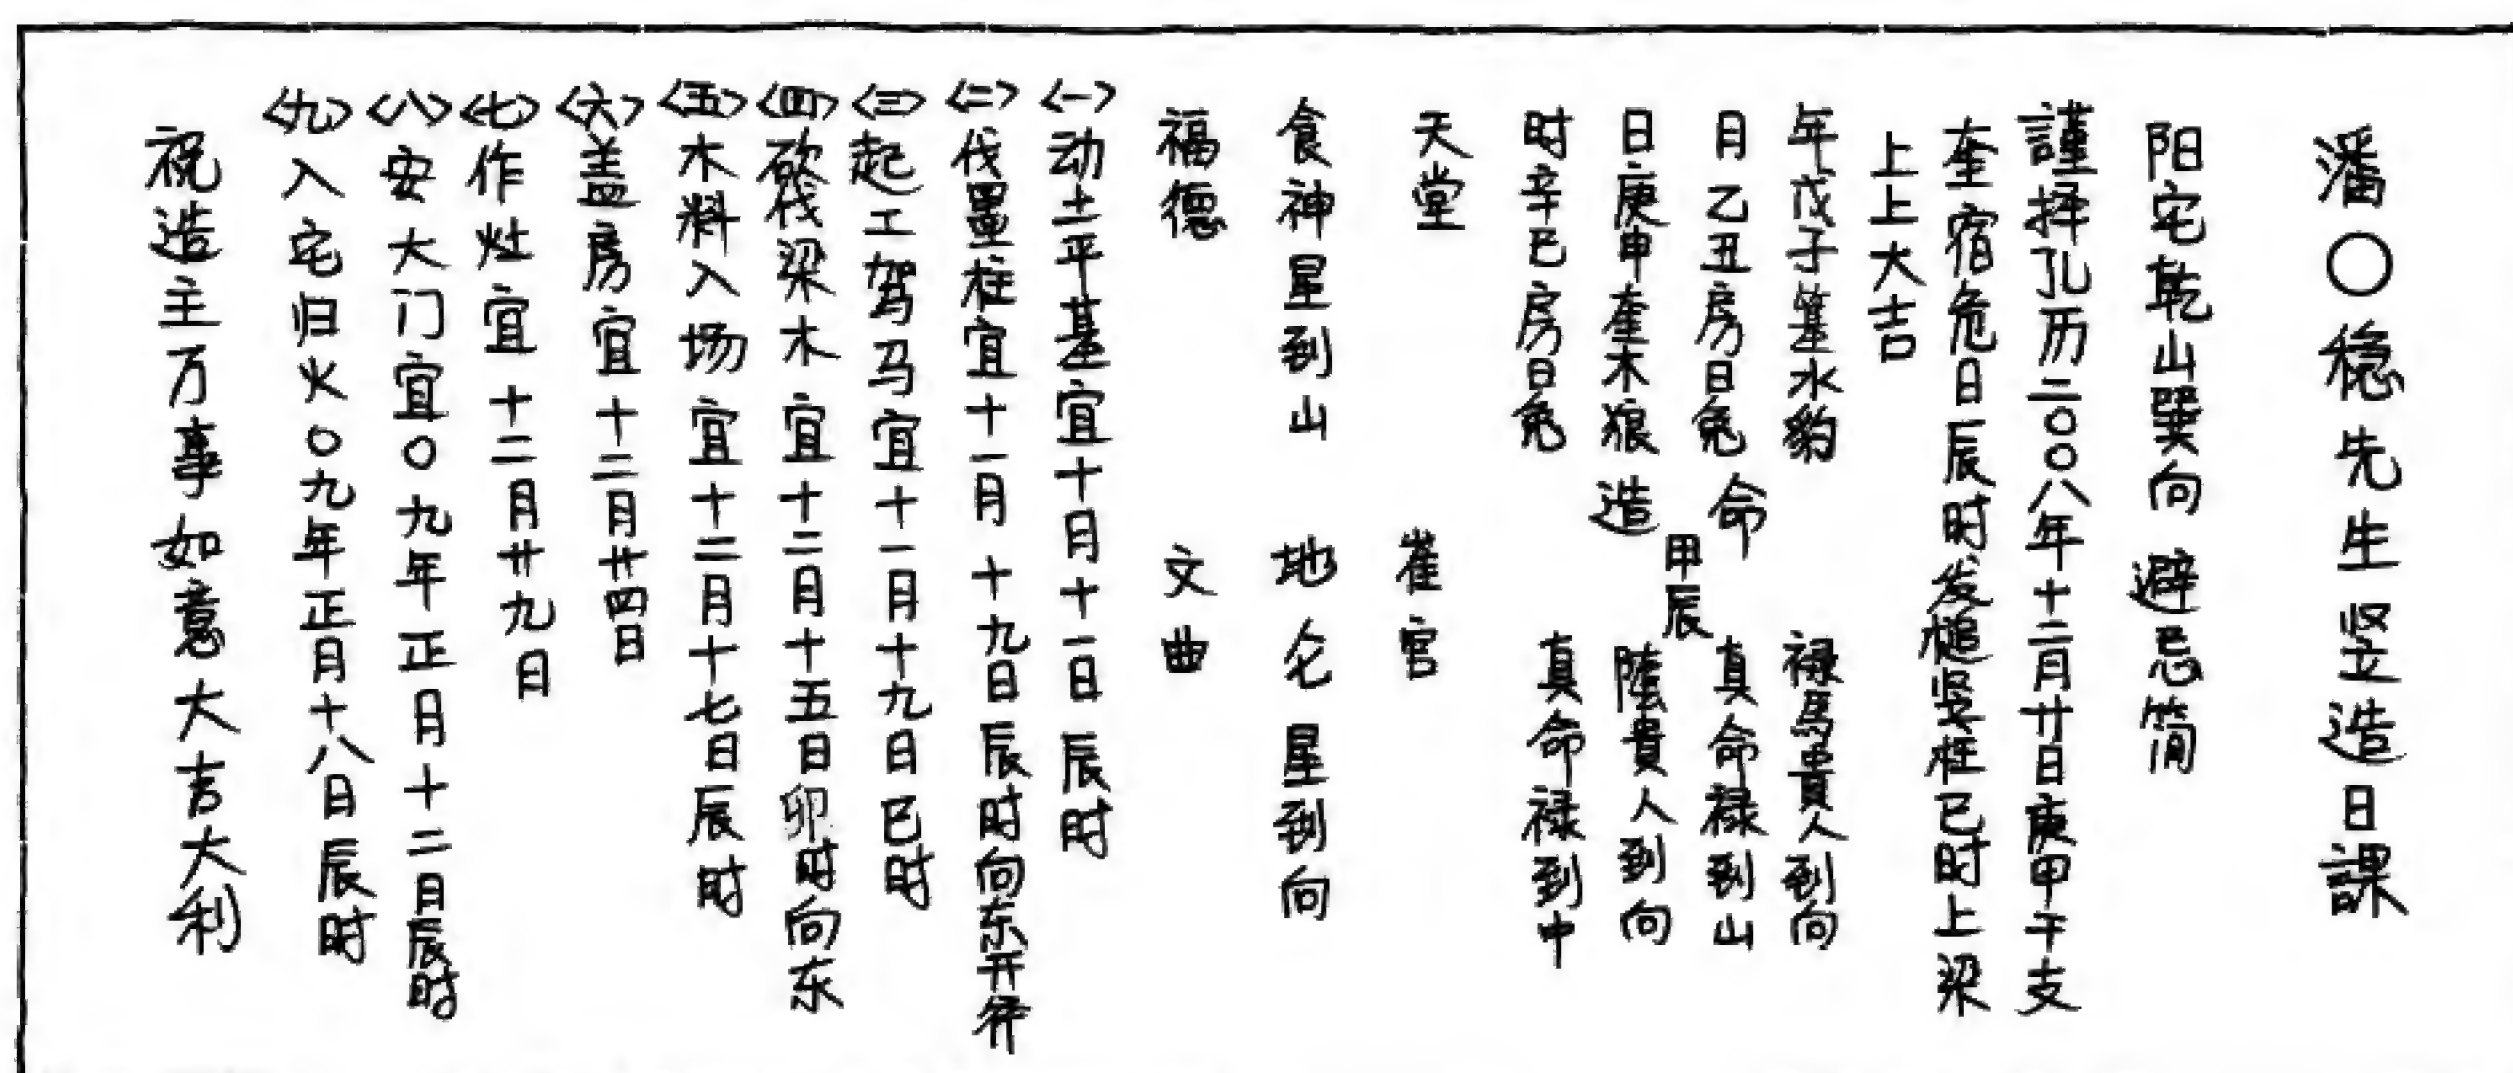 潘〇稳先生竖造日課
阳宅乾山巽向 避忌简
謹择孔历二〇〇八年十二月廿日庚申干支
奎宿危日辰时发槌竖柱巳时上梁
上上大吉
年戊子箕水豹 禄馬貴人到向
月乙丑房日兔 命 真命禄到山
甲辰
日庚申奎木狼 造 陰貴人到向
时辛巳房日兔 真命禄到中
天堂 崔官
食神星到山 地仑星到向
福德 文曲
<一>动土平基宜十月十一日辰时
<二>伐墨柱宜十一月十九日辰时向东开斧
<三>起工驾马宜十一月十九日巳时
<四>砍伐梁木宜十二月十五日卯时向东
<五>木料入场宜十二月十七日辰时
<六>盖房宜十二月廿四日
<七>作灶宜十二月廿九日
<八>安大门宜〇九年正月十二日辰时
<九>入宅归火〇九年正月十八日辰时
祝造主万事如意大吉大利